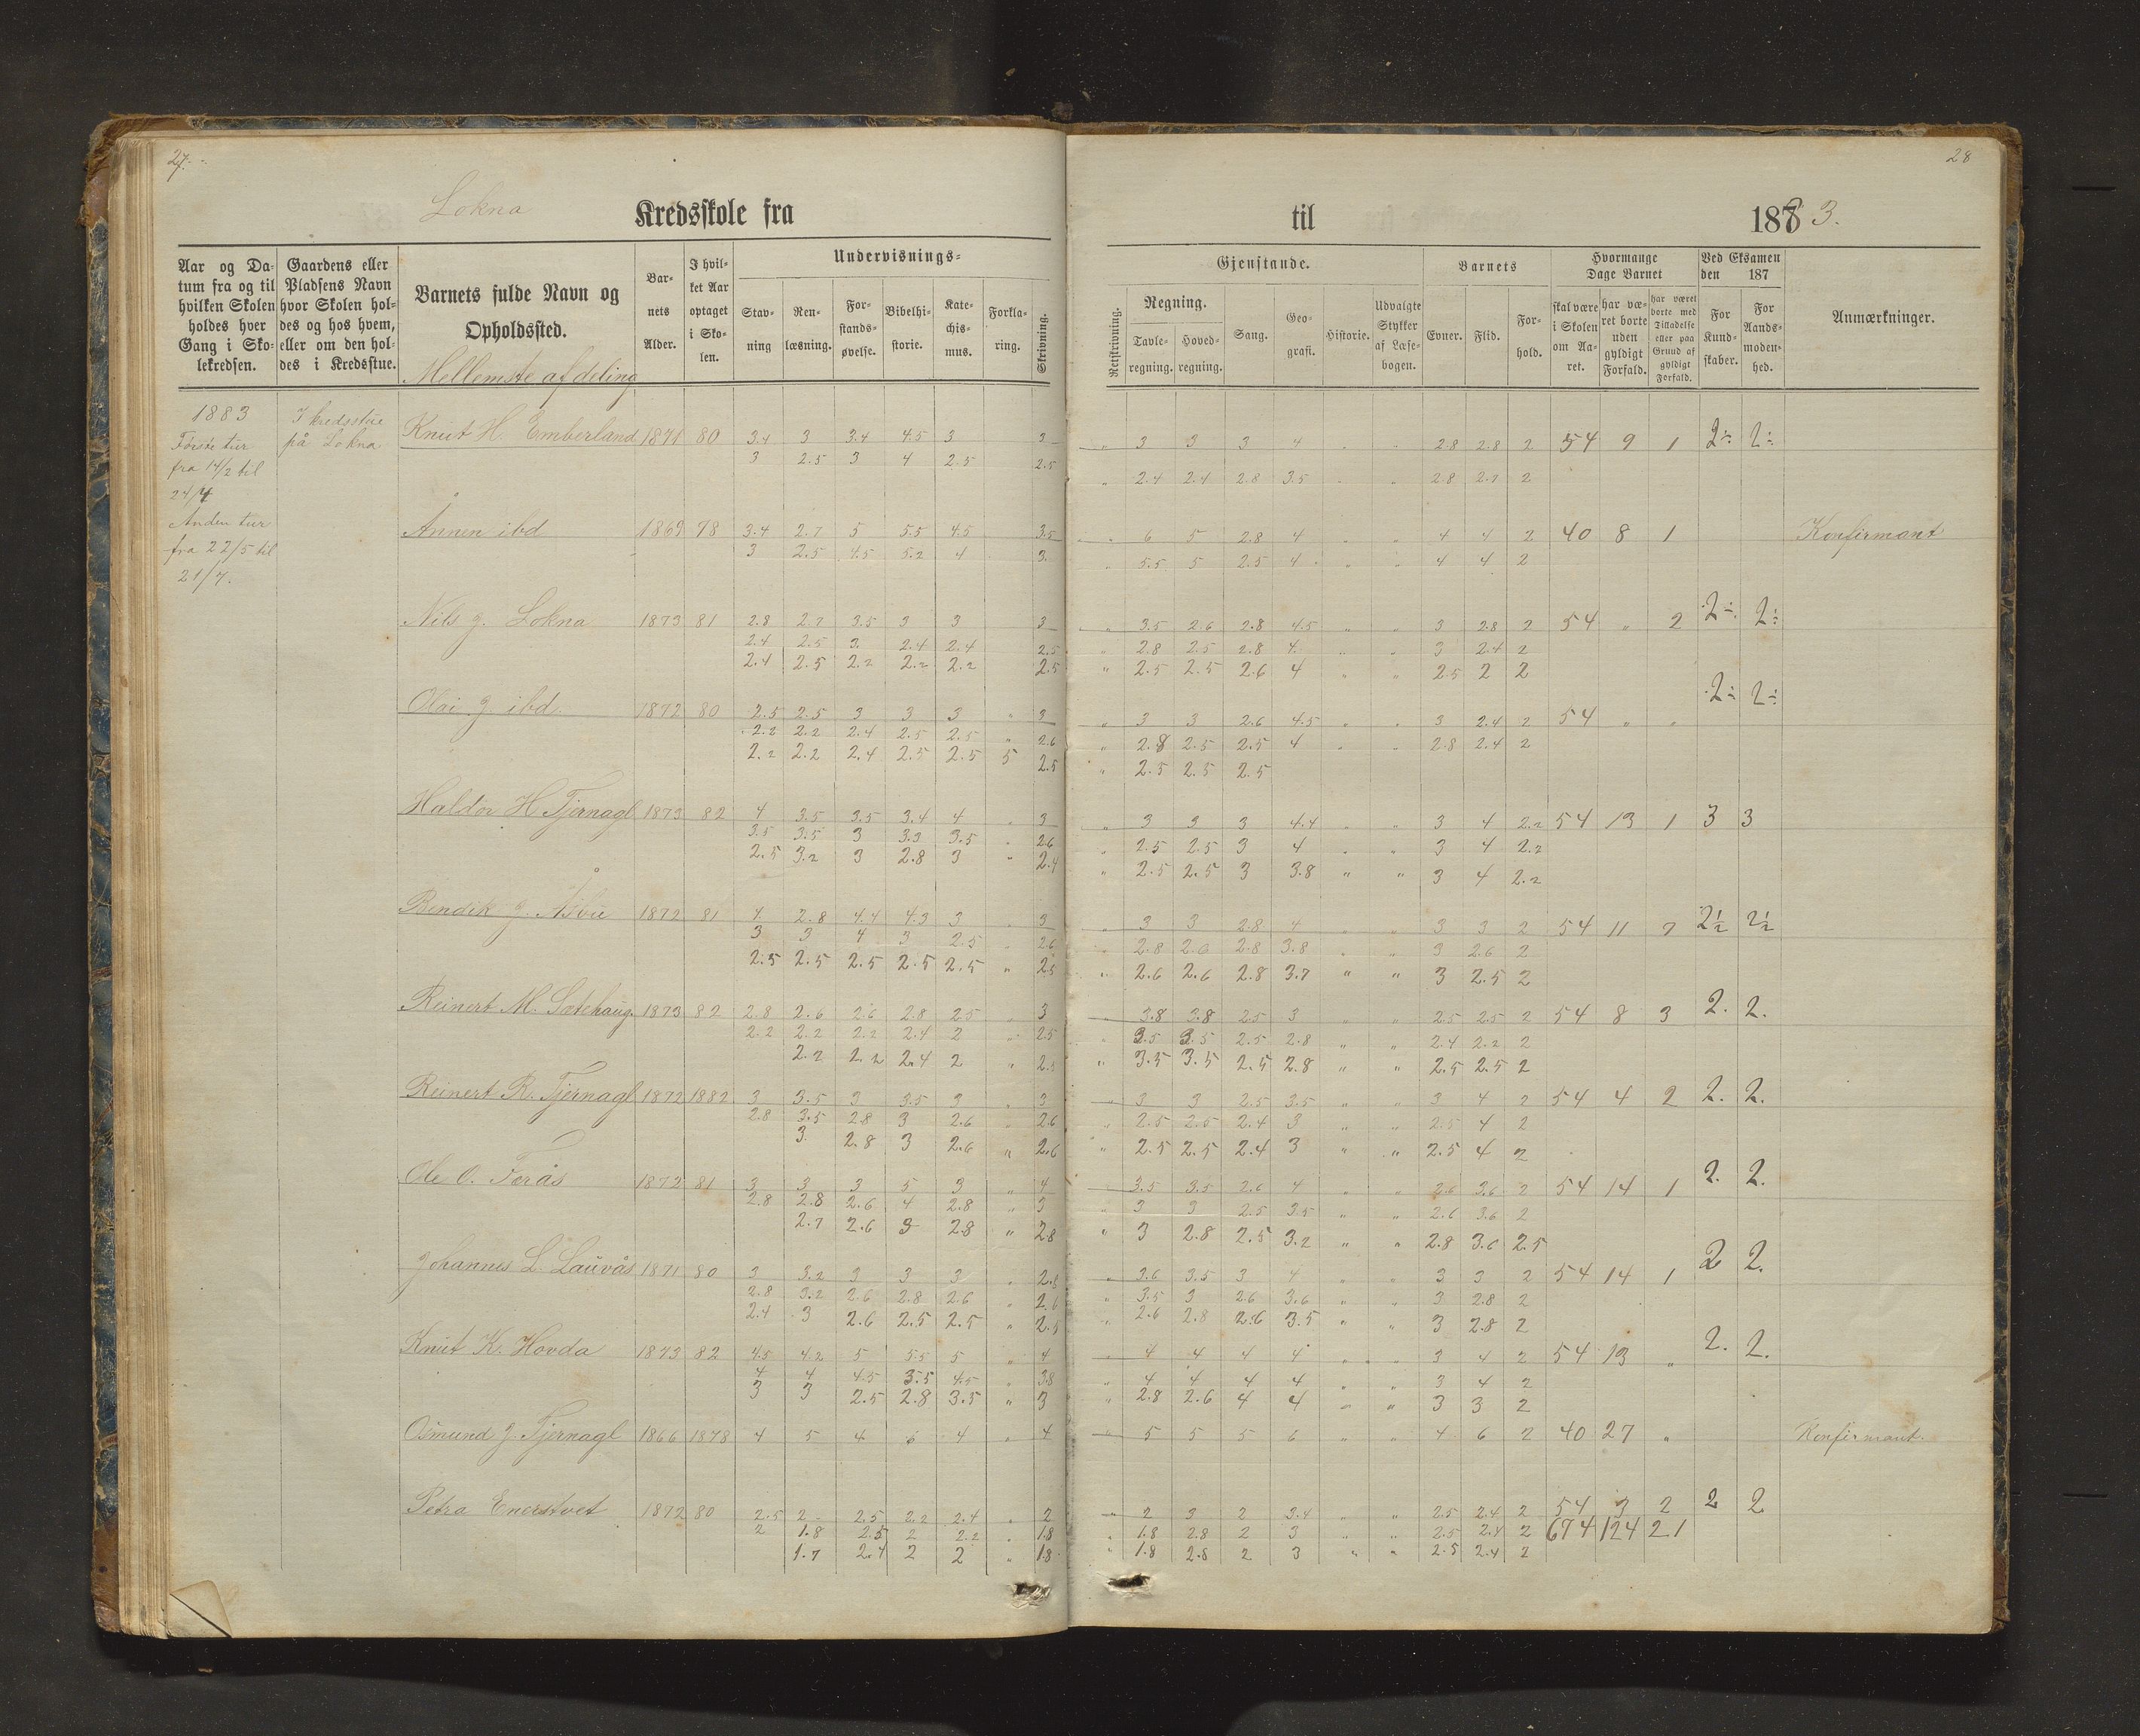 27.
28
Lokna Kredsskole fra til 1883.
Aar og Da-
tum fra og til
hvilken Skolen
holdes hver
Gang i Sko-
lekredsen.
Gaardens eller
Pladsens Navn
hvor Skolen hol-
des og hos hvem,
eller om den hol-
des i Kredsstue.
Barnets fulde Navn og
Opholdssted.
Mellemste afdeling
Bar-
nets
Alder.
I hvil-
ket Aar
optaget
i Sko-
len.
Undervisnings-
Stav-
ning
Ren-
læsning.
For-
stands-
øvelse.
Bibelhi-
storie.
Kate-
chis-
mus.
Forkla-
ring.
Skrivning.
Gjenstande.
Retskrivning.
Regning.
Tavle-
regning.
Hoved-
regning.
Sang.
Geo-
grafi.
Historie.
Udvalgte
Stykker
af Læse-
bogen.
Barnets
Evner.
Flid.
For-
hold.
Hvormange
Dage Barnet
skal være
i Skolen
om Aa-
ret.
har væ-
ret borte
uden
gyldigt
Forfald.
har været
borte med
Tilladelse
eller paa
Grund af
gyldigt
Forfald.
Ved Eksamen
den 187
For
Kund-
skaber.
For
Aands-
moden-
hed.
Anmærkninger.
1883
Første tur
fra 14/2 til
24/4
Anden tur
fra 22/5 til
21/7.
I kredsstue
på Lokna
Knut H. Emberland 1871 80 3.4 3 3.4 4.5 3 3 " 3 3 3 4 " " 2.8 2.8 2 54 9 1 2÷ 2÷
3 2.5 3 4 2.5 2.5 " 2.4 2.4 2.8 3.5 " " 2.8 2.7 2
Annen ibd 1869 78 3.4 2.7 5 5.5 4.5 3.5 " 6 5 2.8 4 " " 4 4 2 40 8 1 Konfirmant
3 2.5 4.5 5.2 4 3. " 5.5 5 2.5 4 " " 4 4 2
Nils J. Lokna 1873 81 2.8 2.7 3.5 3 3 3 " 3.5 2.6 2.8 4.5 " " 3 2.8 2 54 " 2 2÷ 2÷
2.4 2.5 3. 2.4 2.4 2.5 " 2.8 2.5 2.8 4. " " 3 2.4 2
2.4 2.5 2.2 2.2 2.2 2.5 " 2.5 2.5 2.6 4 " " 2.5 2 2
Olai J. ibd. 1872 80 2.5 2.5 3 3 3 " 3 " 3 3 2.6 4.5 " " 3 2.4 2 54 " " 2÷ 2÷
2.2 2.2 2.4 2.5 2.5 " 2.6 " 2.8 2.5 2.5 4 " " 2.8 2.4 2
2.2 2.2 2.4 2.5 2.5 5 2.5 " 2.5 2.5 2.5
Haldor H Tjernagl 1873 82 4 3.5 3.5 3.4 4 " 3 " 3 3 3 4.4 " " 3 4 2.2 54 13 1 3 3
3.5 3.5 3 3.3 3.5 " 2.6 " 2.5 2.5 3 4 " " 3 4 2.2
2.5 3.2 3 2.8 3 " 2.4 " 2.5 2.5 3 3.8 " " 3 4 2.2
Bendik J. Åsbu 1872 81 4. 2.8 4.4 4.3 3 " 3 " 3 3 2.8 4 " " 3 3 2 54 11 7 2½ 2½
3 3 4 3 2.5 " 2.6 " 2.8 2.6 2.8 3.8 " " 3 2.6 2
2.5 2.5 2.5 2.5 2.5 " 2.5 " 2.6 2.6 2.8 3.7 " " 3 2.5 2
Reinert M. Sætehaug. 1873 82 2.8 2.6 2.6 2.8 2.5 " 3 " 3.8 3.8 2.5 3 " " 2.5 2.5 2 54 8 3 2. 2.
2.2 2.2 2.2 2.4 2 " 2.5 " 3.5 3.5 2.5 2.8 " " 2.4 2.2 2
2.2 2.2 2.4 2 " 2.5 " 3.5 3.5 2.5 2.8 " " 2.5 2.5 2
Reinert R. Tjernagl 1872 1882 3 3.5 3 3.5 3 " 3 " 3 3 2.5 3.5 " " 3 4 2 54 4 2 2. 2.
2.8 3.5 2.8 3 2.6 " 2.6 " 2.5 2.5 2.4 3 " " 2.5 4 2
3. 2.8 3 2.6 " 2.6 " 2.5 2.5 2.4 3 " " 2.5 4 2
Ole O. Førås 1872 81 3 3 3 5 3 " 4 " 3.5 3.5 2.6 4 " " 2.6 3.6 2 54 14 1 2. 2.
2.8 2.8 2.6 4 2.8 " 3 " 3 3 2.5 3.5 " " 2.6 3.6 2
2.7 2.6 3 2.8 " 2.8 " 3 2.8 2.5 3.2 " " 2.8 3.6 2.5
Johannes L. Lauvås 1871 80 3 3.2 3 3 3 " 2.8 " 3.6 3.5 3 4 " " 3 3 2 54 14 1 2 2.
2.8 3.2 2.6 2.8 2.6 " 2.6 " 3.5 3 2.6 3.6 " " 3 2.8 2
2.4 3 2.6 2.5 2.5 " 2.5 " 2.6 2.8 2.6 3.5 " " 3 2.8 2
Knut K. Hovda 1873 82 4.5 4.2 5 5.5 5 " 4 " 4 4 4 4 " " 3 4 2 54 13 " 2. 2.
4 4 4.5 3.5 4.5 " 3.8 " 4 4 4 4 " " 3 4 2
3 3 2.5 2.8 3.5 " 3 " 2.8 2.6 4 4 " " 3 3 2
Osmund J. Tjernagl 1866 1878 4 5 4 6 4 " 4 " 5 5 5 6 " " 4 6 2 40 27 " Konfirmant.
Petra Enerstvet 1872 80 2.5 2 2.5 2.2 2.4 " 2 " 2 3 2 3.4 " " 2.5 2.4 2 54 3 2 2 2
2 1.8 2.5 2 2.2 " 1.8 " 1.8 2.8 2 3 " " 2.5 2.4 2 674 124 21
1.7 2.4 2 2 " 1.8 " 1.8 2.8 2 3 " " 2.5 2.4 2